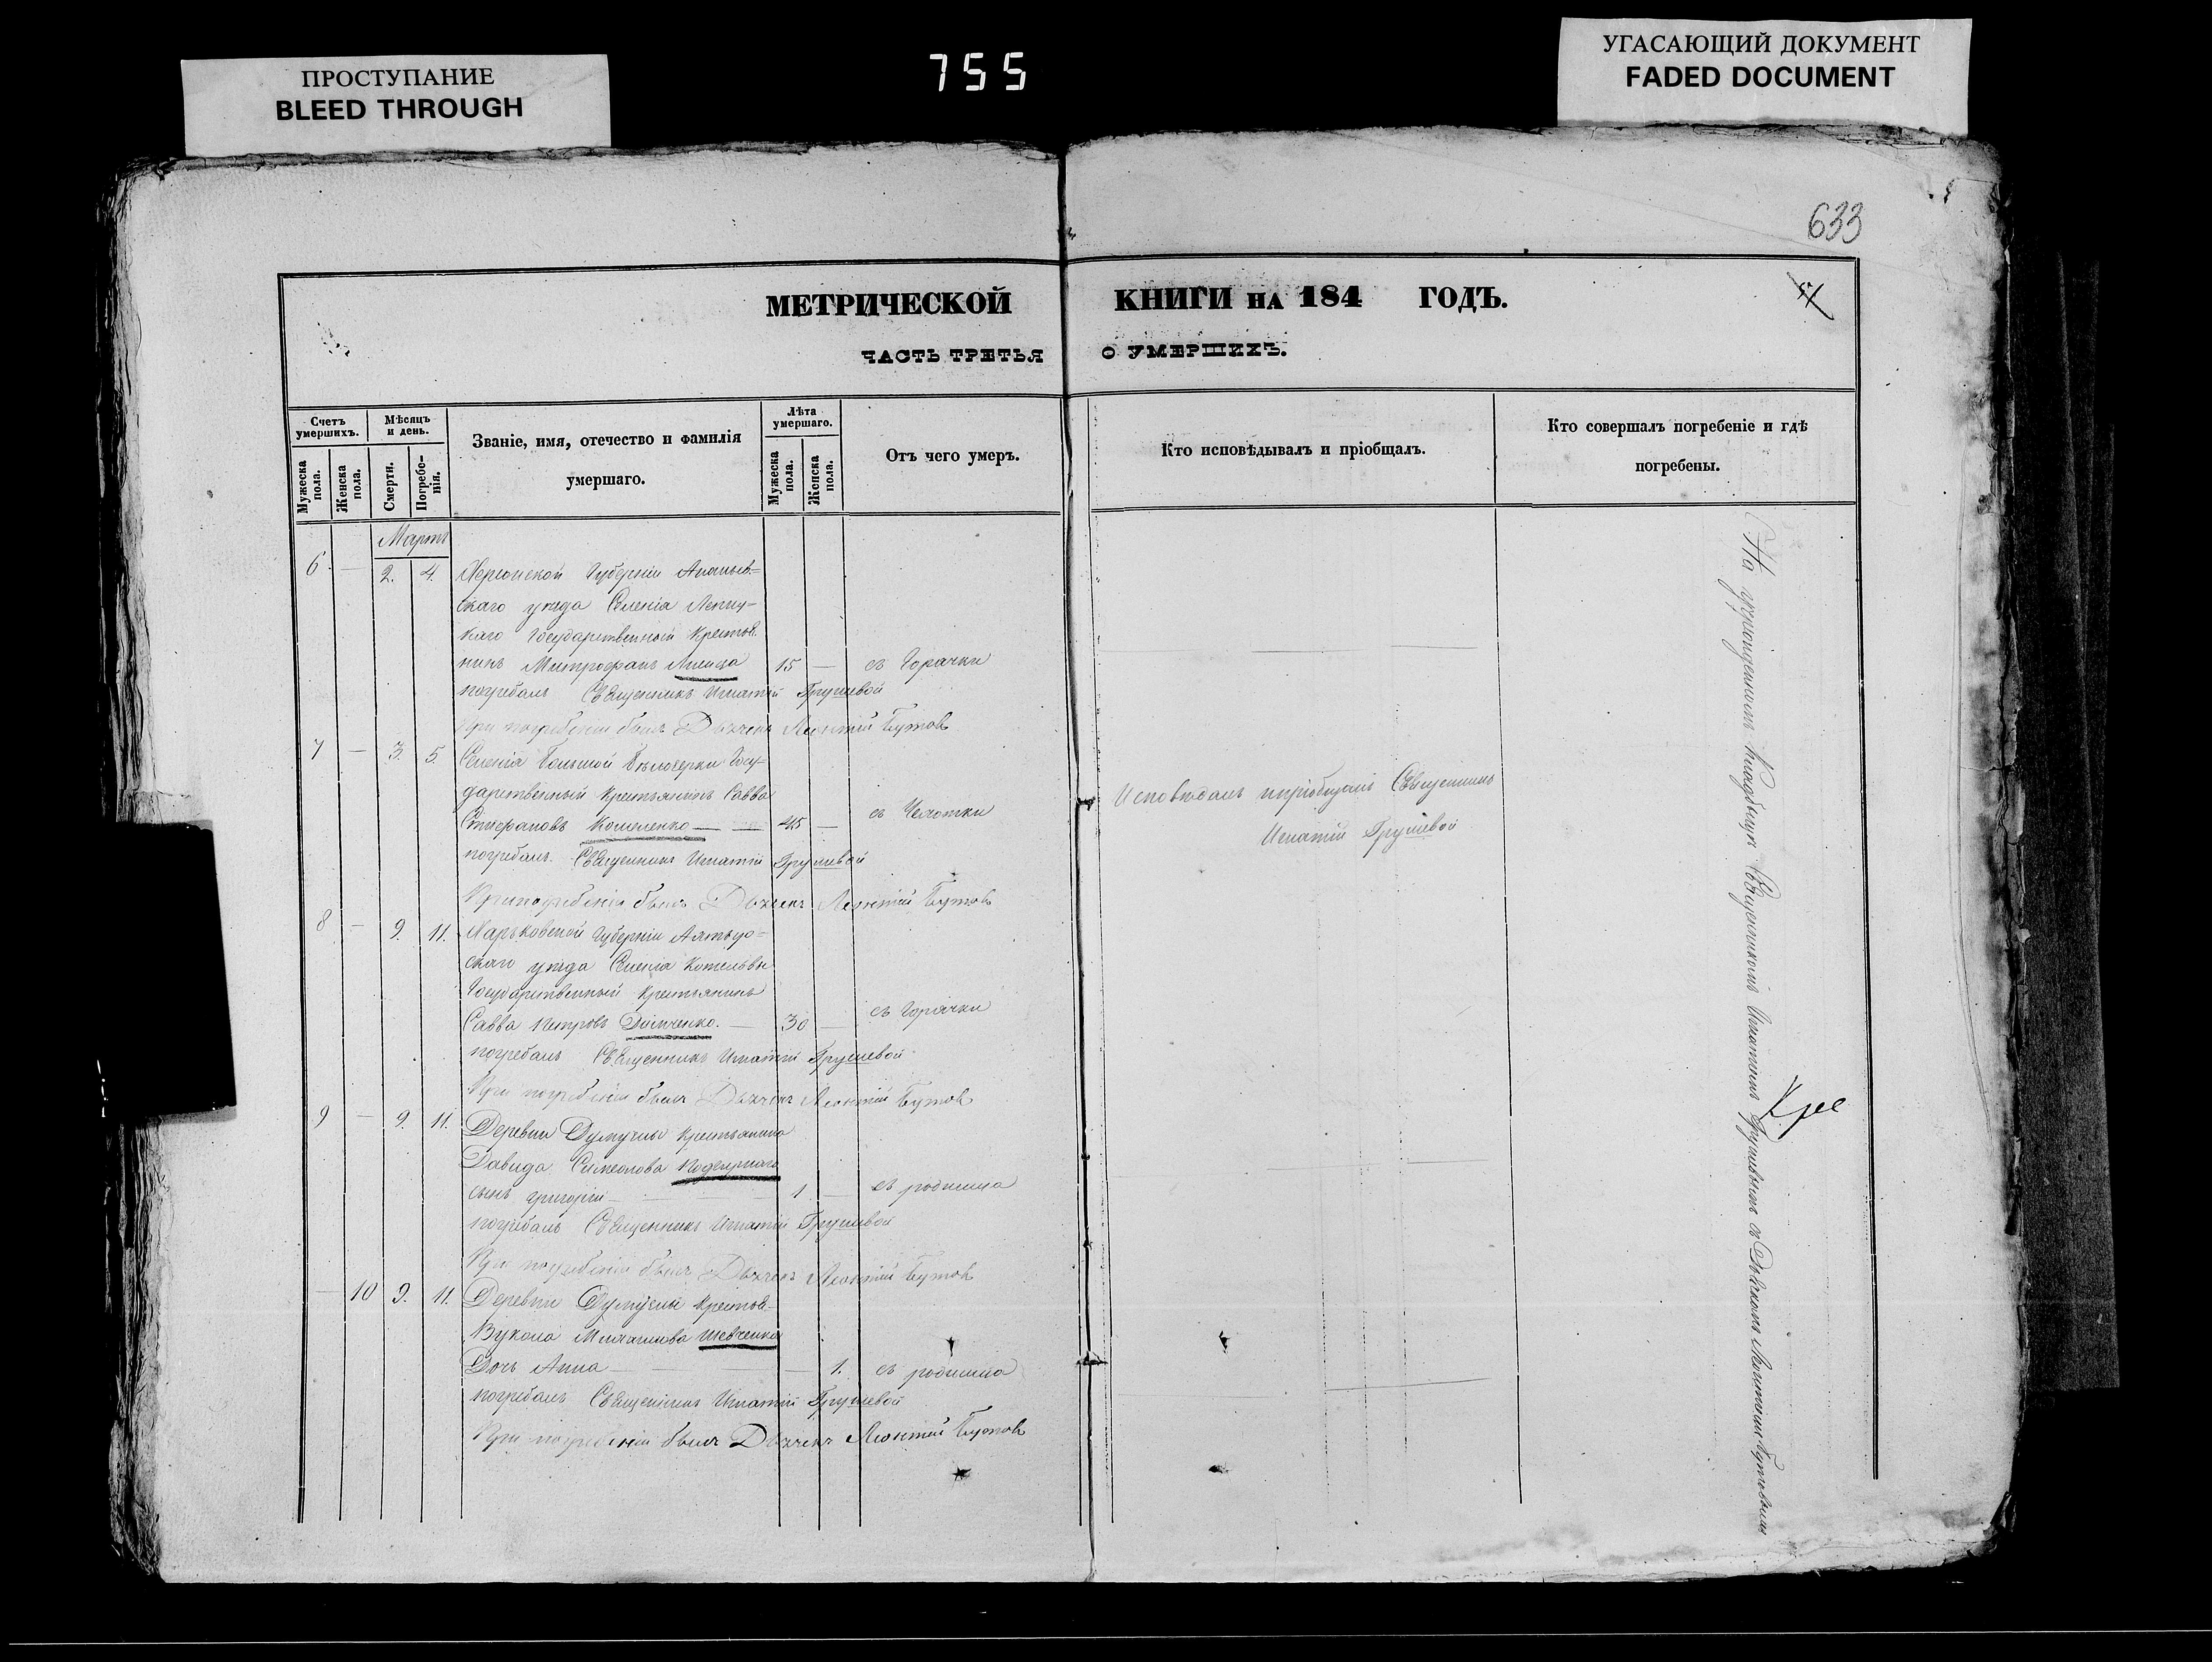 ПРОСТУПАНИЕ
BLEED THROUGH
755
УГАСАЮЩИЙ ДОКУМЕНТ
FADED DOCUMENT
633
МЕТРИЧЕСКОЙ КНИГИ НА 184 ГОДЪ.
ЧАСТЬ ТРЕТЬЯ О УМЕРШИХЪ.
Счетъ умершихъ.
Мужеска пола.
Женска пола.
Мѣсяцъ и день.
Смерти.
Погребе-нія.
Званіе, имя, отечество и фамилія
умершаго.
Лѣта умершаго.
Мужеска пола.
Женска пола.
Отъ чего умеръ.
Кто исповѣдывалъ и пріобщалъ.
Кто совершалъ погребеніе и гдѣ
погребены.
Мартъ
6 — 2. 4. Херсонской Губерніи Ананьев-
скаго уѣзда Селенія
каго Государственный Крестья
нинъ Митрофанъ 15 — съ Горячки
погребалъ Священникъ Игнатій Грушевой
При погребеніи былъ Дьячекъ Леонтій Бутовъ
7 — 3. 5. Селенія Большой Бѣлозерки Госу-
дарственный Крестьянинъ Савва
Стефановъ Кошеленко — — 45 — съ Чехотки
погребалъ Священникъ Игнатій Грушевой
При погребеніи былъ Дьячекъ Леонтій Бутовъ
Исповѣдалъ и пріобщалъ Священникъ
Игнатій Грушевой
8 — 9. 11. Харьковской Губерніи
скаго уѣзда Селенія Котельвы
Государственный Крестьянинъ
Савва Петровъ — 30 — съ Горячки
погребалъ Священникъ Игнатій Грушевой
При погребеніи былъ Дьячекъ Леонтій Бутовъ
9 — 9. 11. Деревни Крестьянина
Давида Симеонова
сынъ Григорій — 1 — съ родимца
погребалъ Священникъ Игнатій Грушевой
При погребеніи былъ Дьячекъ Леонтій Бутовъ
— 10 9. 11. Деревни Крестья-
Вукола Михаилова Шевченка
Дочь Анна — — 1. съ родимца
погребалъ Священникъ Игнатій Грушевой
При погребеніи былъ Дьячекъ Леонтій Бутовъ
На Кладбищѣ Священникомъ Игнатіемъ Грушевымъ съ Дьячкомъ Леонтіемъ Бутовымъ